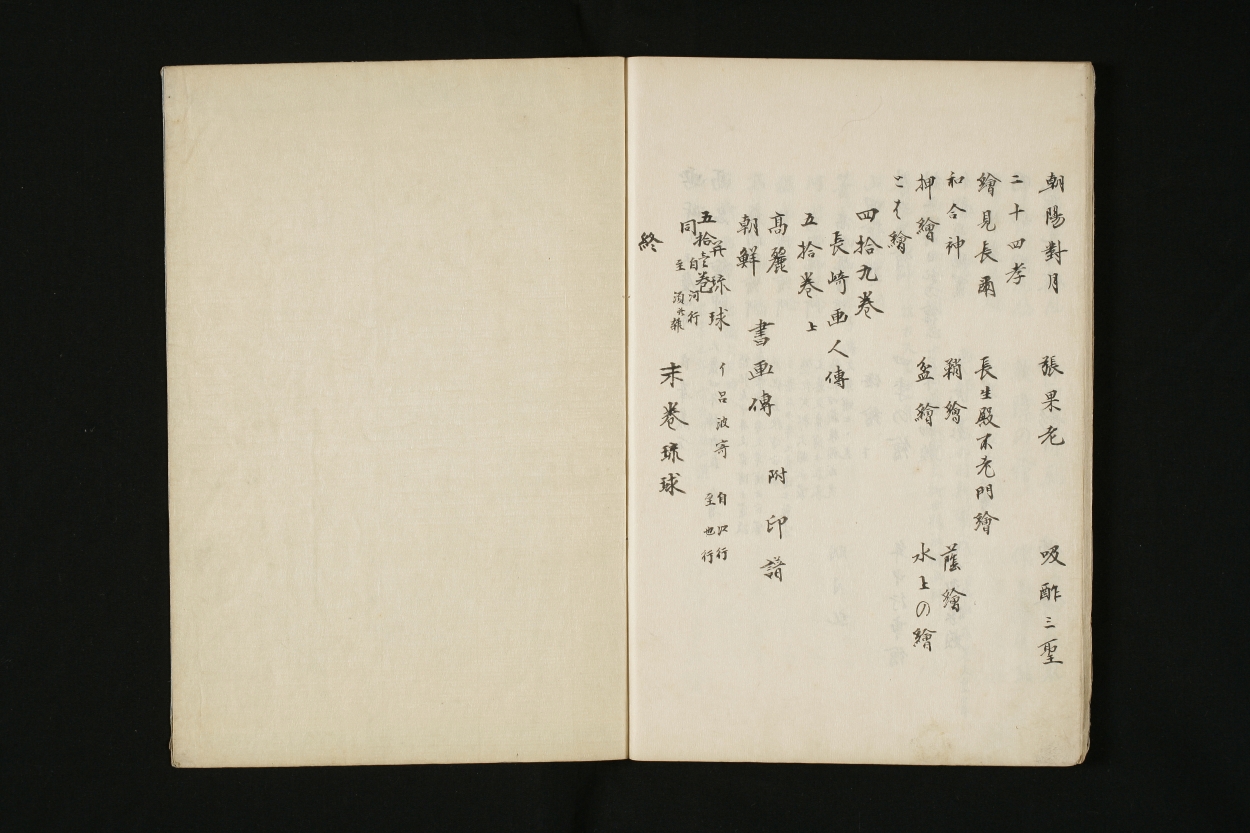 朝陽對月　張果老　吸酢三聖
二十四孝
繪見長爾　長生殿不老門繪
和合神　鞘繪　蔭繪
押繪　盆繪　水上の繪
とは繪
四拾九卷
長崎画人傳
五拾卷上
高麗
朝鮮
書画傳　附印譜
并琉球　イ呂波寄　自以行　至也行
五拾壱卷
同　自河行　至須
末卷琉球
終